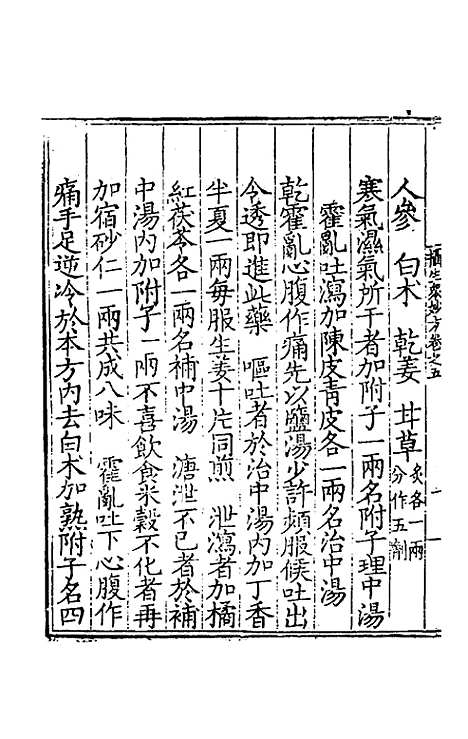 攝生衆妙方卷之五 一
人參 白术 乾姜 甘草炙各一兩分作五劑
寒氣濕氣所干者加附子一兩名附子理中湯
霍亂吐瀉加陳皮靑皮各一兩名治中湯
乾霍亂心腹作痛先以鹽湯少許頻服候吐出
令透即進此藥 嘔吐者於治中湯內加丁香
半夏一兩每服生姜十片同煎 泄瀉者加橘
紅茯苓各一兩名補中湯 溏泄不已者於補
中湯內加附子一兩不喜飲食米穀不化者再
加宿砂仁一兩共成八味 霍亂吐下心腹作
痛手足逆冷於本方內去白术加熟附子名四